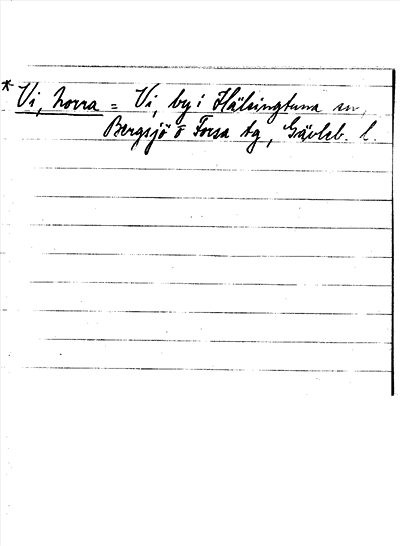 * Vi, norra = Vi, by i Hälsingtuna sn,
Bergsjö o Forsa tg, Gävleb. l.